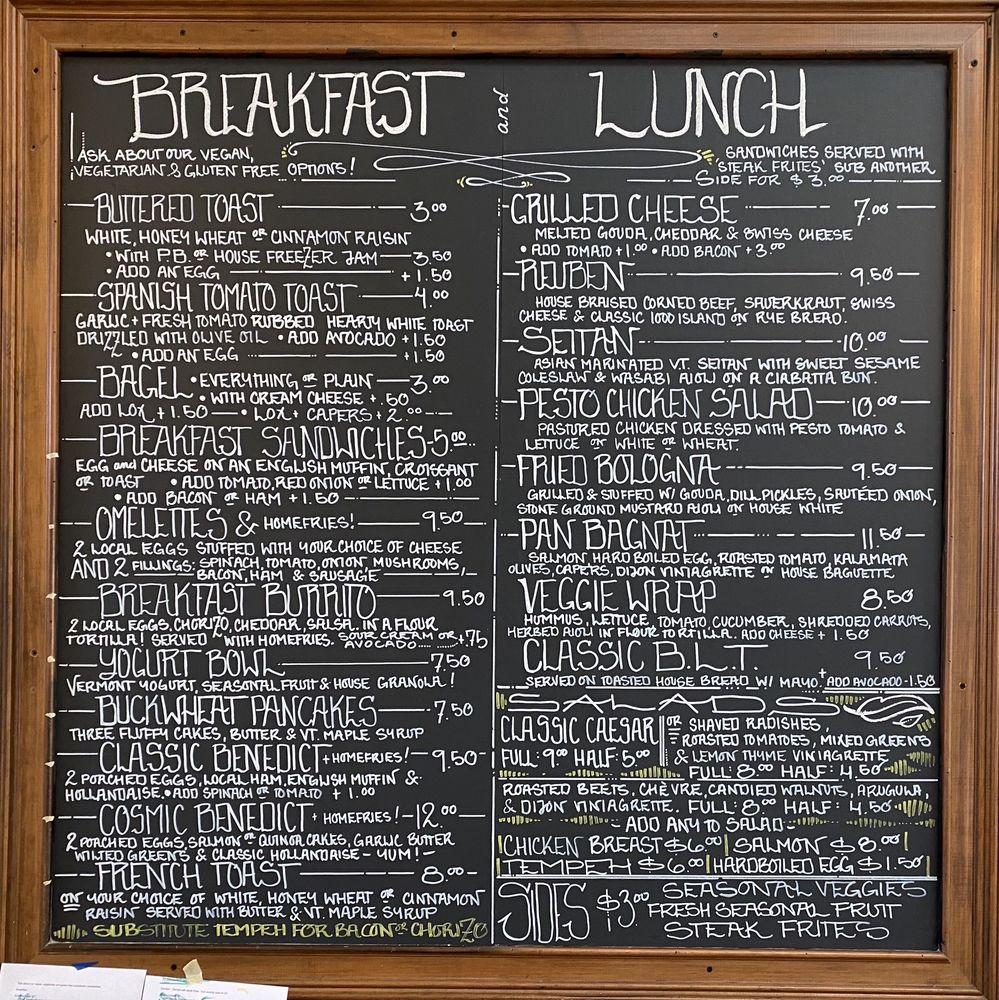 BREAKFAST and LUNCH
ASK ABOUT OUR VEGAN,
VEGETARIAN & GLUTEN FREE OPTIONS!
BUTTERED TOAST 3.00
WHITE, HONEY WHEAT OR CINNAMON RAISIN
• WITH P.B. OR HOUSE FREEZER JAM 3.50
• ADD AN EGG +1.50
SPANISH TOMATO TOAST 4.00
GARLIC + FRESH TOMATO RUBBED HEARTY WHITE TOAST
DRIZZLED WITH OLIVE OIL • ADD AVOCADO +1.50
• ADD AN EGG +1.50
BAGEL • EVERYTHING OR PLAIN 3.00
• WITH CREAM CHEESE +.50
ADD LOX +1.50 • LOX + CAPERS +2.00
BREAKFAST SANDWICHES 5.00
EGG and CHEESE ON AN ENGLISH MUFFIN, CROISSANT
OR TOAST • ADD TOMATO, RED ONION OR LETTUCE +1.00
• ADD BACON OR HAM +1.50
OMELETTES & HOMEFRIES! 9.50
2 LOCAL EGGS STUFFED WITH YOUR CHOICE OF CHEESE
AND 2 FILLINGS: SPINACH, TOMATO, ONION, MUSHROOMS,
BACON, HAM & SAUSAGE
BREAKFAST BURRITO 9.50
2 LOCAL EGGS, CHORIZO, CHEDDAR, SALSA. IN A FLOUR
TORTILLA! SERVED WITH HOMEFRIES. SOUR CREAM OR AVOCADO.... +.75
YOGURT BOWL 7.50
VERMONT YOGURT, SEASONAL FRUIT & HOUSE GRANOLA!
BUCKWHEAT PANCAKES 7.50
THREE FLUFFY CAKES, BUTTER & VT. MAPLE SYRUP
CLASSIC BENEDICT + HOMEFRIES! 9.50
2 POACHED EGGS, LOCAL HAM, ENGLISH MUFFIN &
HOLLANDAISE. • ADD SPINACH OR TOMATO + 1.00
COSMIC BENEDICT + HOMEFRIES! 12.00
2 POACHED EGGS, SALMON OR QUINOA CAKES, GARLIC BUTTER
WILTED GREENS & CLASSIC HOLLANDAISE - YUM! -
FRENCH TOAST 8.00
ON YOUR CHOICE OF WHITE, HONEY WHEAT OR CINNAMON
RAISIN SERVED WITH BUTTER & VT. MAPLE SYRUP
SUBSTITUTE TEMPEH FOR BACON OR CHORIZO
SANDWICHES SERVED WITH
'STEAK FRITES' SUB ANOTHER
SIDE FOR $3.00
GRILLED CHEESE 7.00
MELTED GOUDA, CHEDDAR & SWISS CHEESE
• ADD TOMATO +1.00 • ADD BACON +3.00
REUBEN 9.50
HOUSE BRAISED CORNED BEEF, SAUERKRAUT, SWISS
CHEESE & CLASSIC 1000 ISLAND ON RYE BREAD.
SEITAN 10.00
ASIAN MARINATED VT. SEITAN WITH SWEET SESAME
COLESLAW & WASABI AIOLI ON A CIABATTA BUN.
PESTO CHICKEN SALAD 10.00
PASTURED CHICKEN DRESSED WITH PESTO TOMATO &
LETTUCE ON WHITE OR WHEAT.
FRIED BOLOGNA 9.50
GRILLED & STUFFED W/ GOUDA, DILL PICKLES, SAUTÉED ONION,
STONE GROUND MUSTARD AIOLI ON HOUSE WHITE
PAN BAGNAT 11.50
SALMON HARD BOILED EGG, ROASTED TOMATO, KALAMATA
OLIVES, CAPERS, DIJON VINIAGRETTE ON HOUSE BAGUETTE
VEGGIE WRAP 8.50
HUMMUS, LETTUCE, TOMATO, CUCUMBER, SHREDDED CARROTS,
HERBED AIOLI IN FLOUR TORTILLA. ADD CHEESE + 1.50
CLASSIC B.L.T. 9.50
SERVED ON TOASTED HOUSE BREAD W/ MAYO + ADD AVOCADO -1.50
SALADS
CLASSIC CAESAR
FULL: 9.00 HALF: 5.00
OR SHAVED RADISHES,
ROASTED TOMATOES, MIXED GREENS
& LEMON THYME VINIAGRETTE
FULL: 8.00 HALF: 4.50
ROASTED BEETS, CHÈVRE, CANDIED WALNUTS, ARUGULA,
& DIJON VINIAGRETTE. FULL: 8.00 HALF: 4.50
- ADD ANY TO SALAD -
CHICKEN BREAST $6.00 SALMON $8.00
TEMPEH $6.00 HARDBOILED EGG $1.50
SIDES $3.00
SEASONAL VEGGIES
FRESH SEASONAL FRUIT
STEAK FRITES